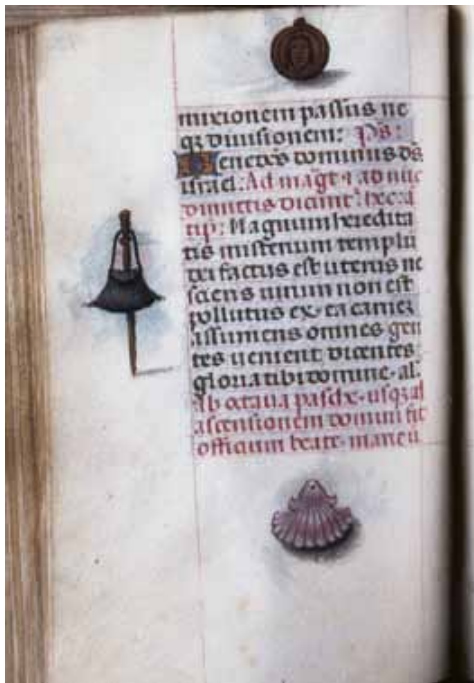 mixionem passus ne
qz divisionem: Ps:
Benedcs dominus ds
israel: Ad magt & ad nuc
dimittis dicint: hec a
tip: Magnum heredita
tis misterium templu
dei factus est uterus ne
sciens virum non est
pollutus ex ea carnez
assumens omnes gen
tes uenient dicentes
gloria tibi domine al.
Ab octava pasche usqz ad
ascensionem domini fit
officium beate marie u